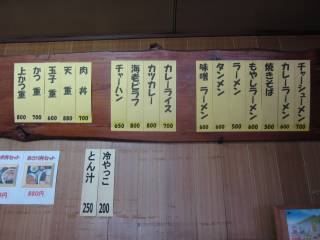 チャーシューメン 700
カレーラーメン 600
焼きそば 500
もやしラーメン 500
ラーメン 500
タンメン 600
味噌ラーメン 600
カレーライス 700
カツカレー 800
海老ピラフ 800
チャーハン 650
肉丼 700
天重 880
玉子重 600
かつ重 700
上かつ重 800
冷やっこ 200
とん汁 250